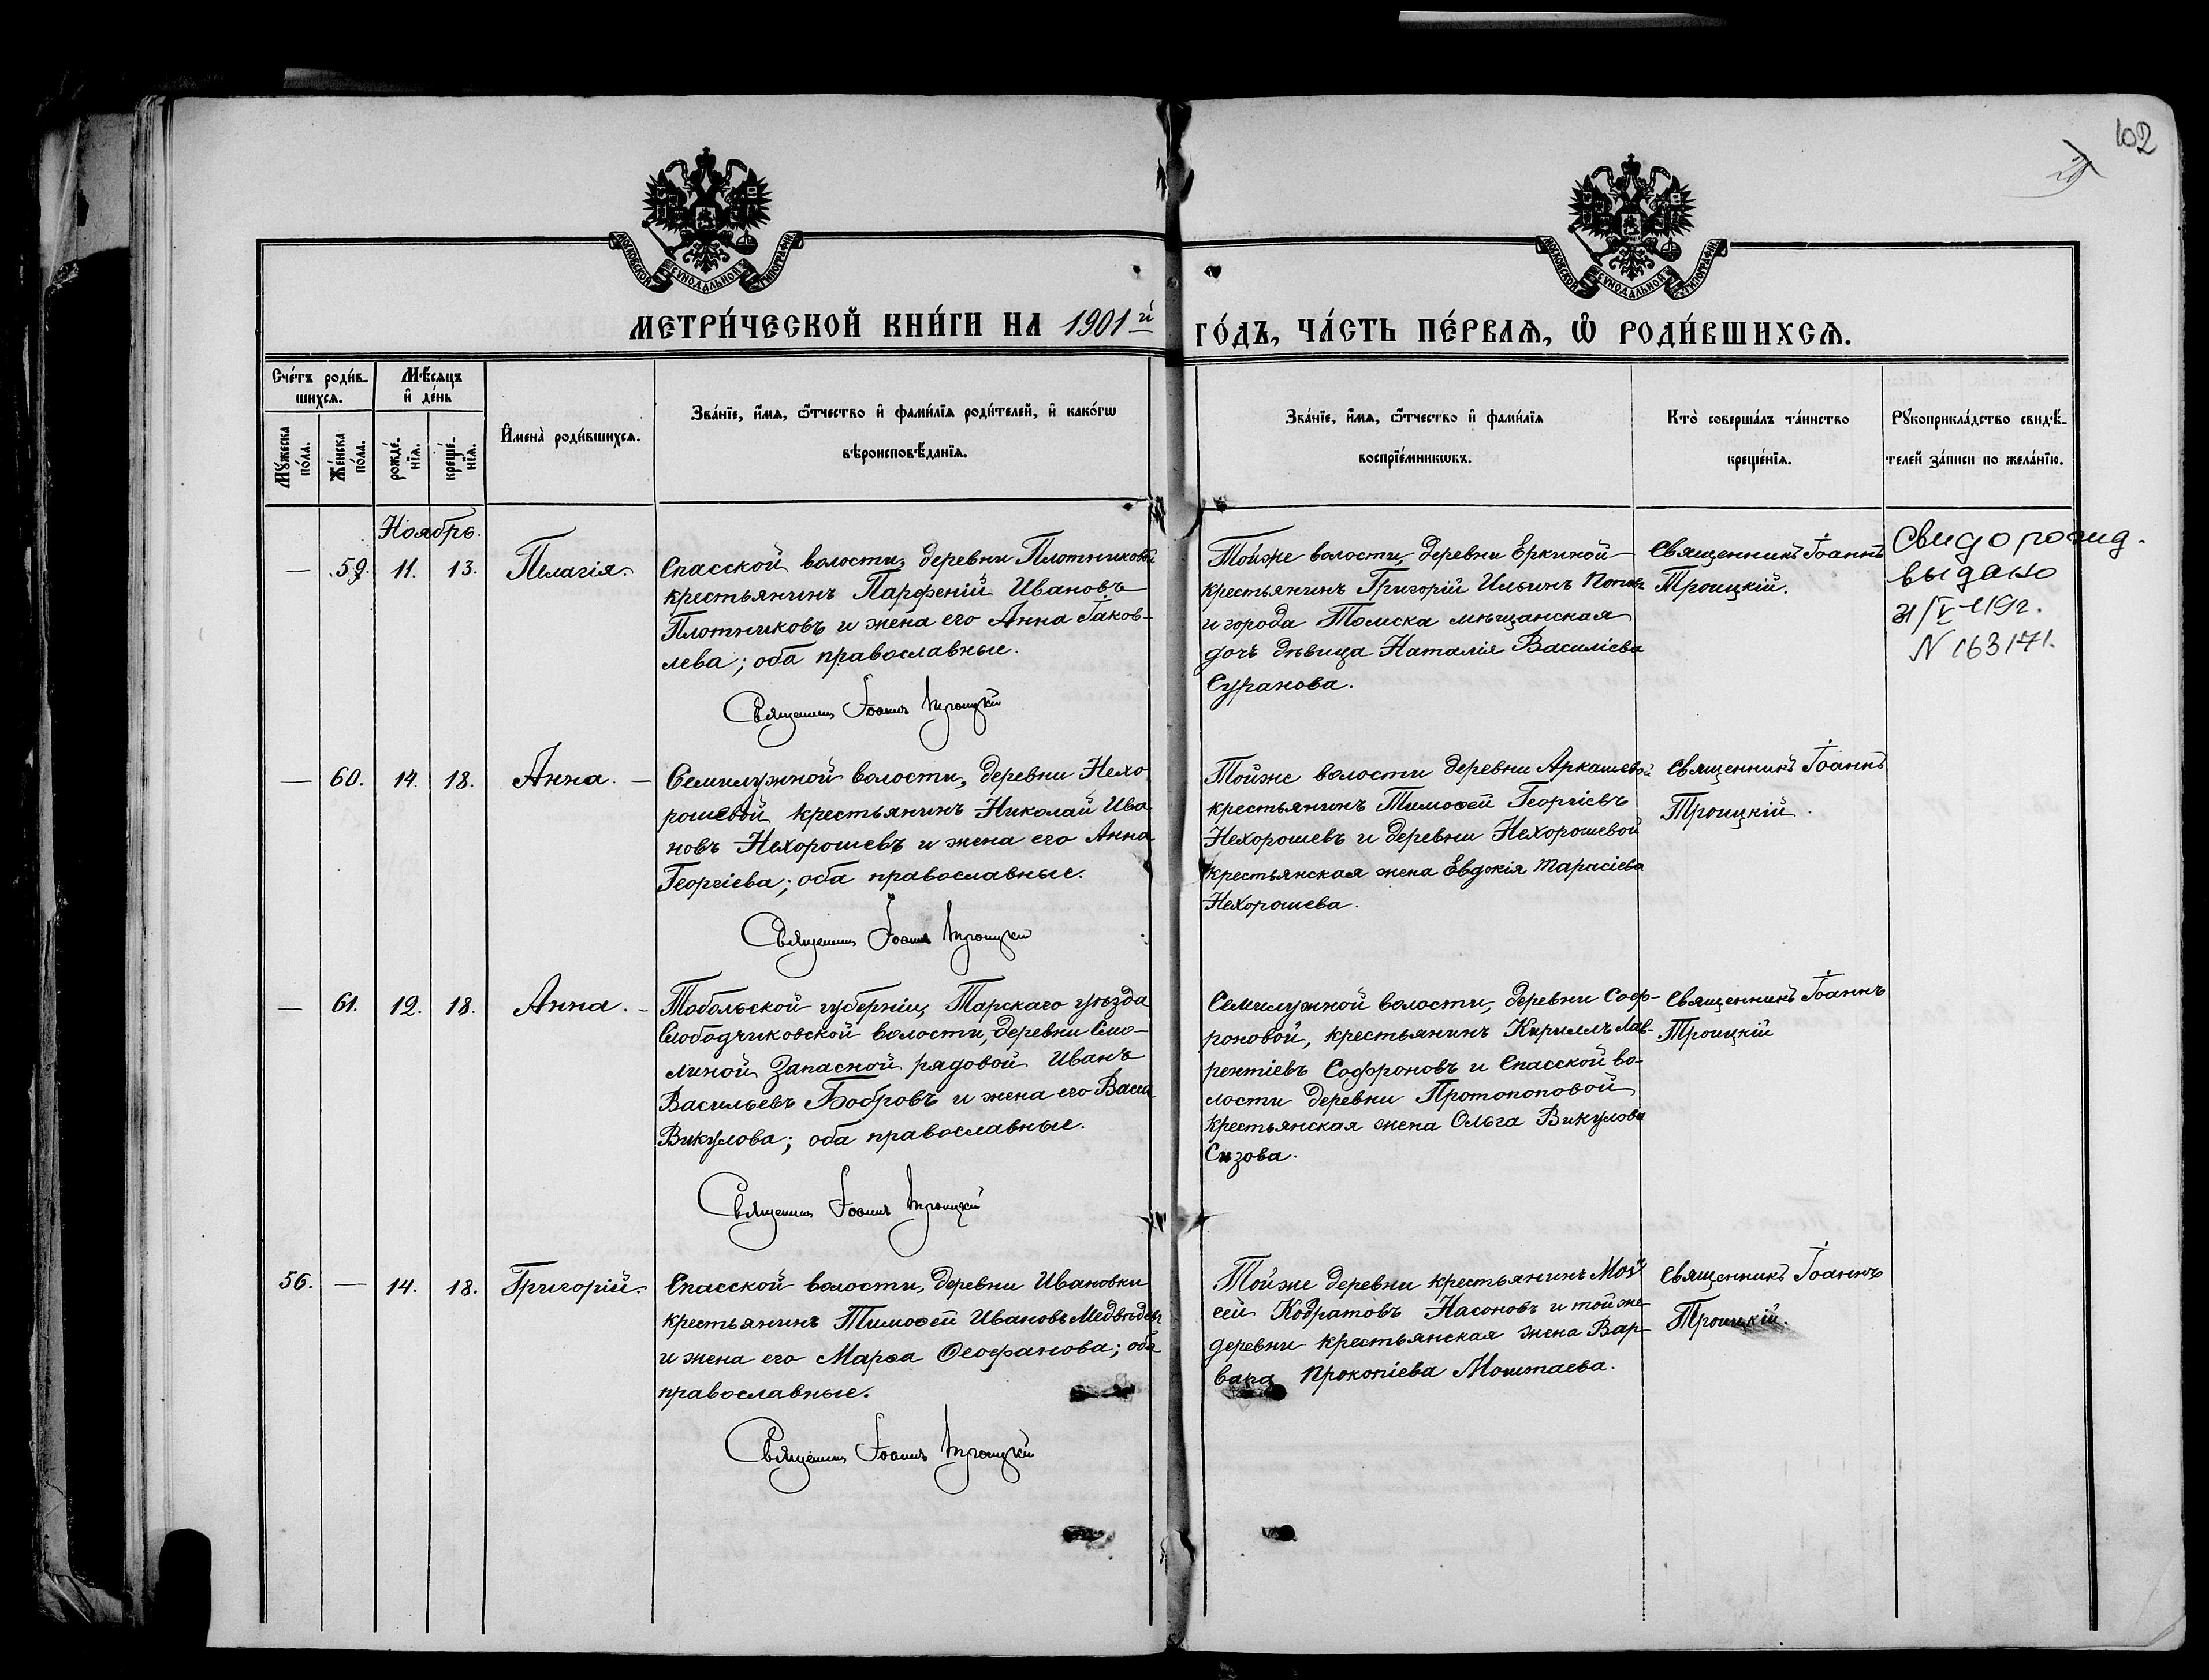 102
29
МОСКОВСКОЙ СѴНОДАЛЬНОЙ ТИПОГРАФІИ
МОСКОВСКОЙ СѴНОДАЛЬНОЙ ТИПОГРАФІИ
МЕТРИ́ЧЕСКОЙ КНИ́ГИ НА 1901й ГО́ДЪ, ЧА́СТЬ ПЕ́РВАѦ, Ѡ РОДИ́ВШИХСѦ.
Сче́тъ роди́в-
шихся.
Мꙋжеска
по́ла.
Же́нска
по́ла.
Мѣ́сяцъ
и҆ де́нь
рожде́-
нїя.
креще́-
нїя.
И҆мена̀ роди́вшихся.
Зва́нїе, и҆́мя, ѻ҆́тчество и҆ фами́лїя роди́телей, и҆ како́гѡ
вѣроисповѣ́данїя.
Зва́нїе, и҆́мя, ѻ҆́тчество и҆ фами́лїя
воспрїе́мникѡвъ.
Кто̀ соверша́лъ та́инство
креще́нїя.
Рꙋкоприкла́дство свидѣ́-
телей за́писи по жела́нїю.
Ноябрь.
— 59. 11. 13. Пелагія.
Спасской волости, деревни Плотниковой
крестьянинъ Парфеній Ивановъ
Плотниковъ и жена его Анна Іаков-
лева; оба православные.
Священникъ Іоаннъ Троицкій
Тойже волости, деревни Еркиной
крестьянинъ Григорій Ильинъ Поповъ
и города Томска мѣщанская
дочь дѣвица Наталія Василіева
Суранова.
Священникъ Іоаннъ
Троицкій.
Свид о рожд.
выдано
N 163171.
— 60. 14. 18. Анна. —
Семилужной волости, деревни Нехо
рошевой крестьянинъ Николай Ива
новъ Нехорошевъ и жена его Анна
Георгіева; оба православные.
Священникъ Іоаннъ Троицкій
Тойже волости деревни Аркашевой
крестьянинъ Тимоѳей Георгіевъ
Нехорошевъ и деревни Нехорошевой
крестьянская жена Евдокія Тарасіева
Нехорошева.
Священникъ Іоаннъ
Троицкій.
— 61. 12. 18. Анна. —
Тобольской губерніи, Тарскаго уѣзда
Слободчиковской волости, деревни Смо-
линой Запасной рядовой Иванъ
Васильевъ Бобровъ и жена его Васса
Викулова; оба православные.
Священникъ Іоаннъ Троицкій
Семилужной волости, деревни Соф-
роновой, крестьянинъ Кириллъ Лав-
рентіевъ Софроновъ и Спасской во-
лости деревни Протопоповой
крестьянская жена Ольга Викулова
Сизова.
Священникъ Іоаннъ
Троицкій
56. — 14. 18. Григорій.
Спасской волости, деревни Ивановки
крестьянинъ Тимоѳей Ивановъ Медвѣдевъ
и жена его Марѳа Ѳеофанова; оба
православные.
Священникъ Іоаннъ Троицкій
Тойже деревни крестьянинъ Мои
сей Кодратовъ Насоновъ и тойже
деревни крестьянская жена Вар
вара Прокопіева Моштаева.
Священникъ Іоаннъ
Троицкій.